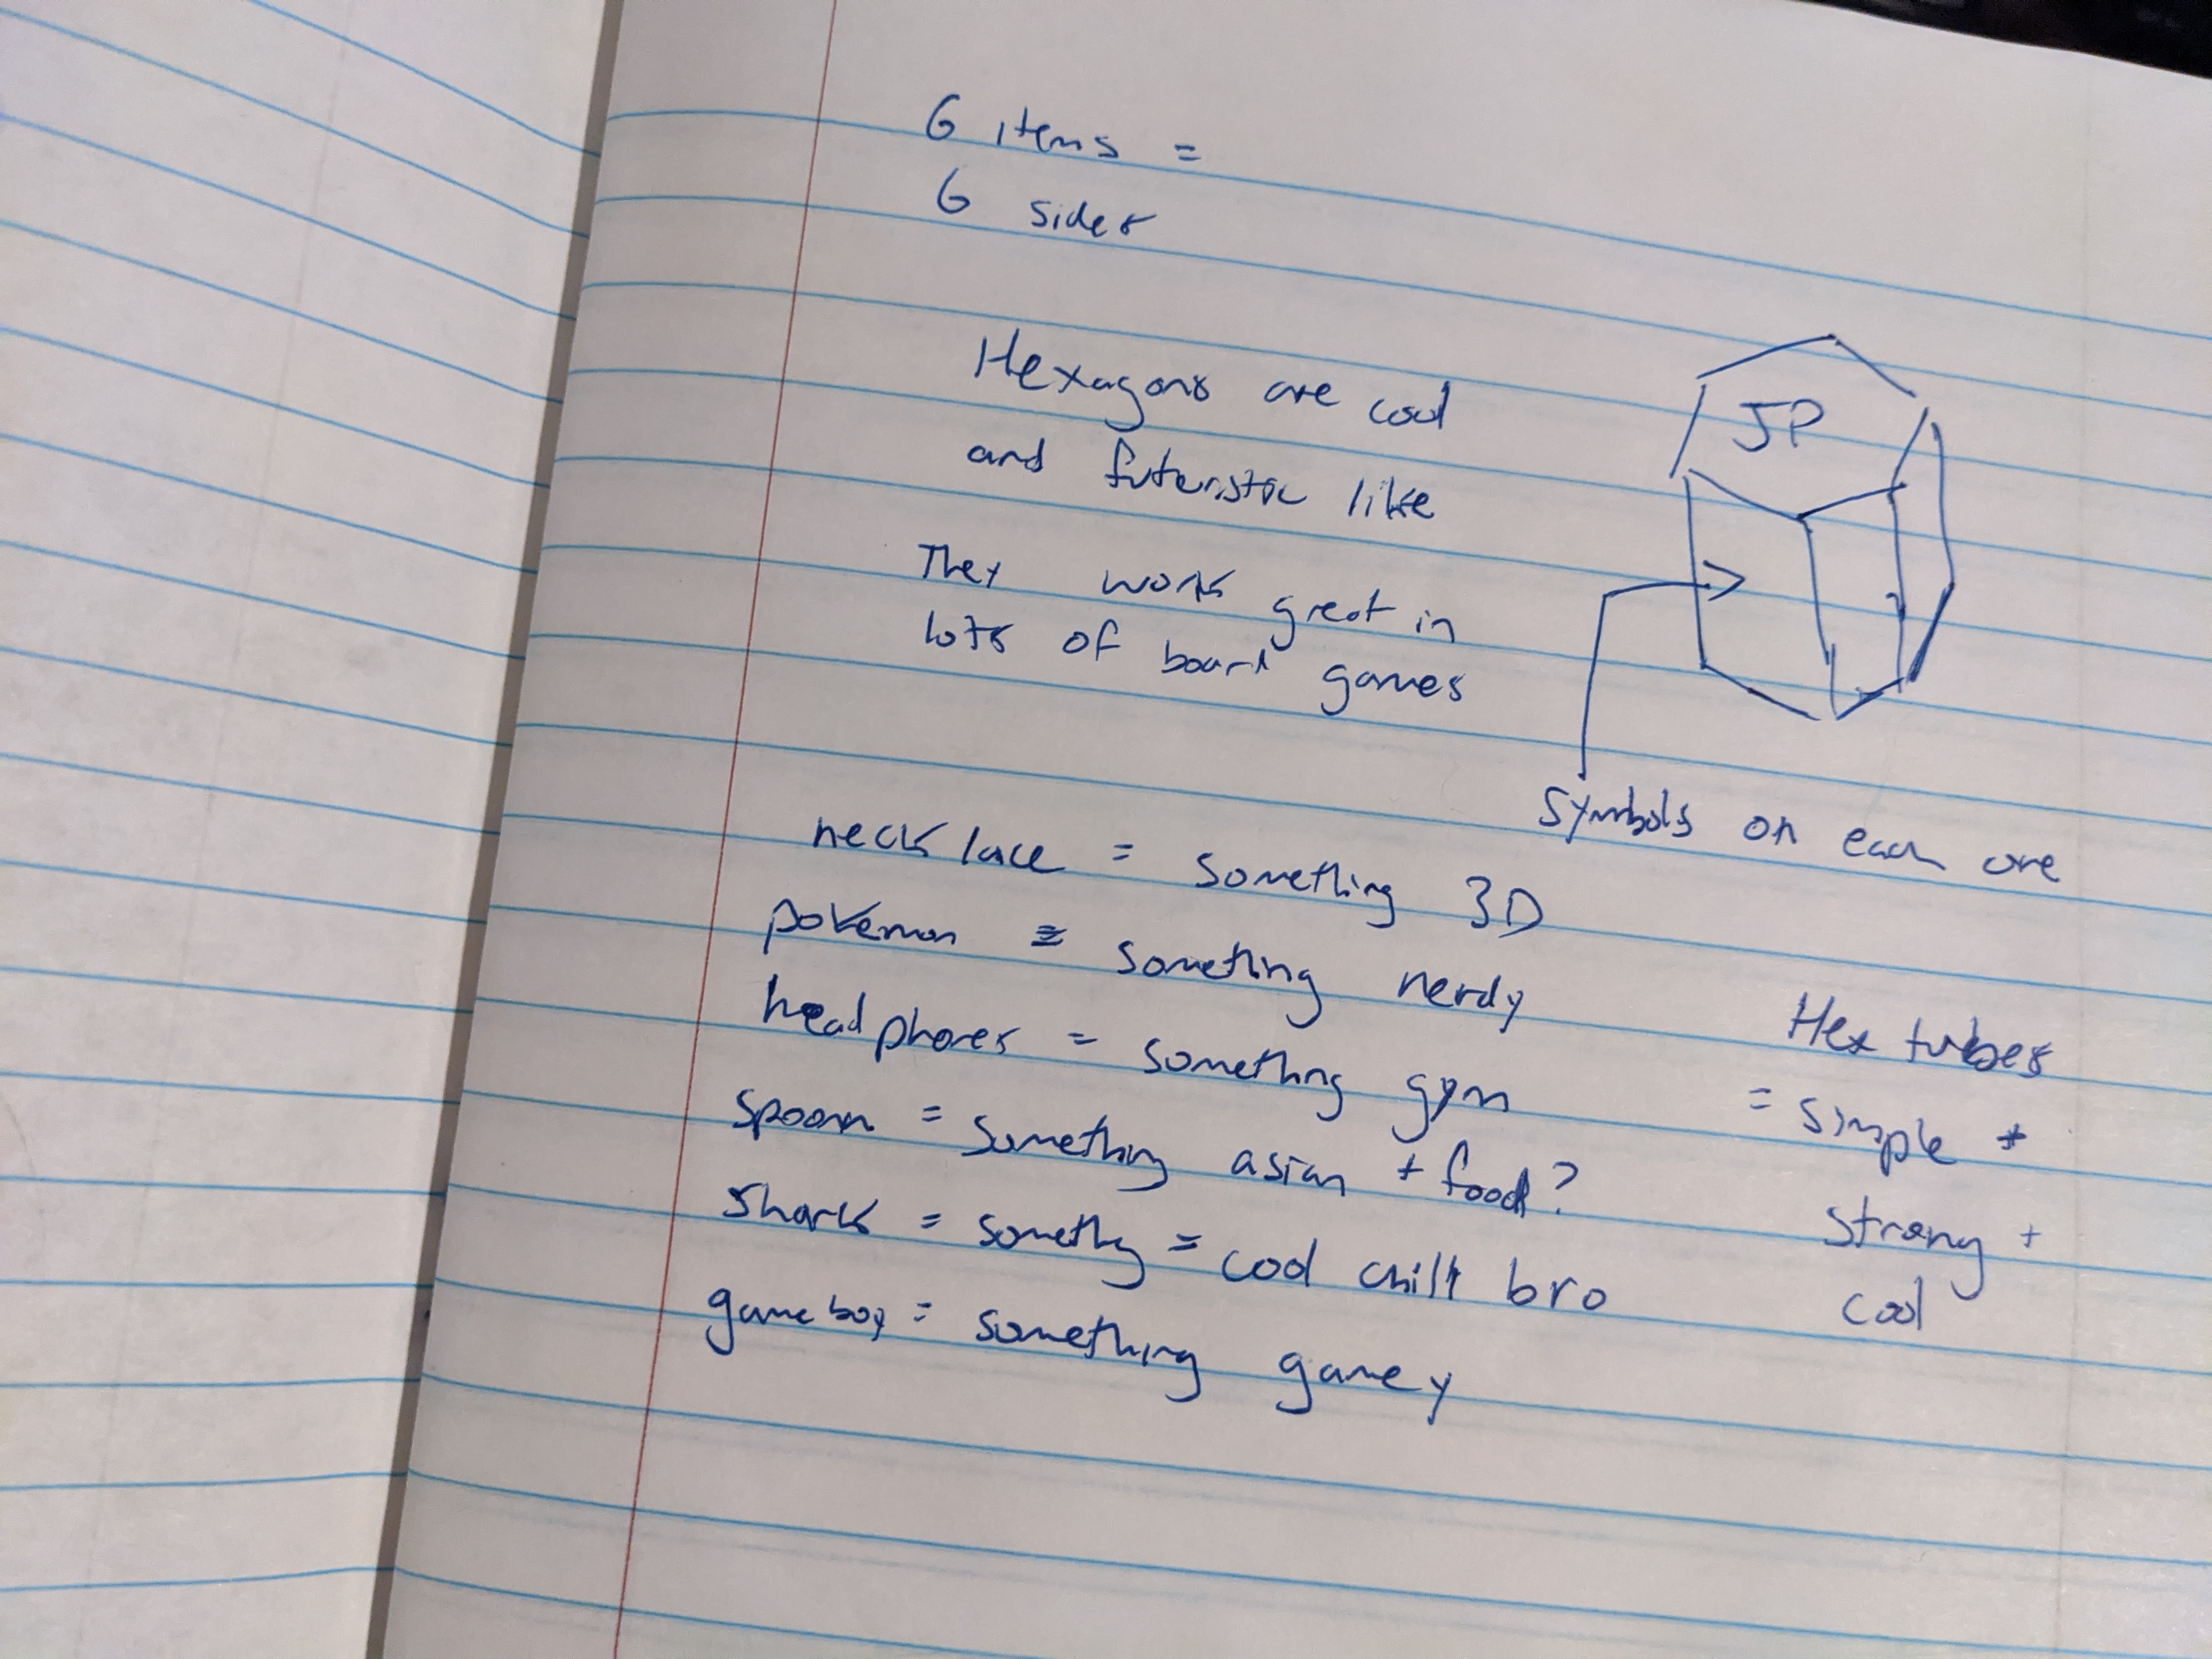 6 items =
6 sides
Hexagons are cool
and futeristic like
They work great in
lots of board games
JP
Symbols on each one
necklace = something 3D
pokemon = something nerdy
headphones = something gym
spoon = something asian + food?
shark = somethg = cool chill bro
gameboy = something gamey
Hex tubes
= simple +
strong +
cool